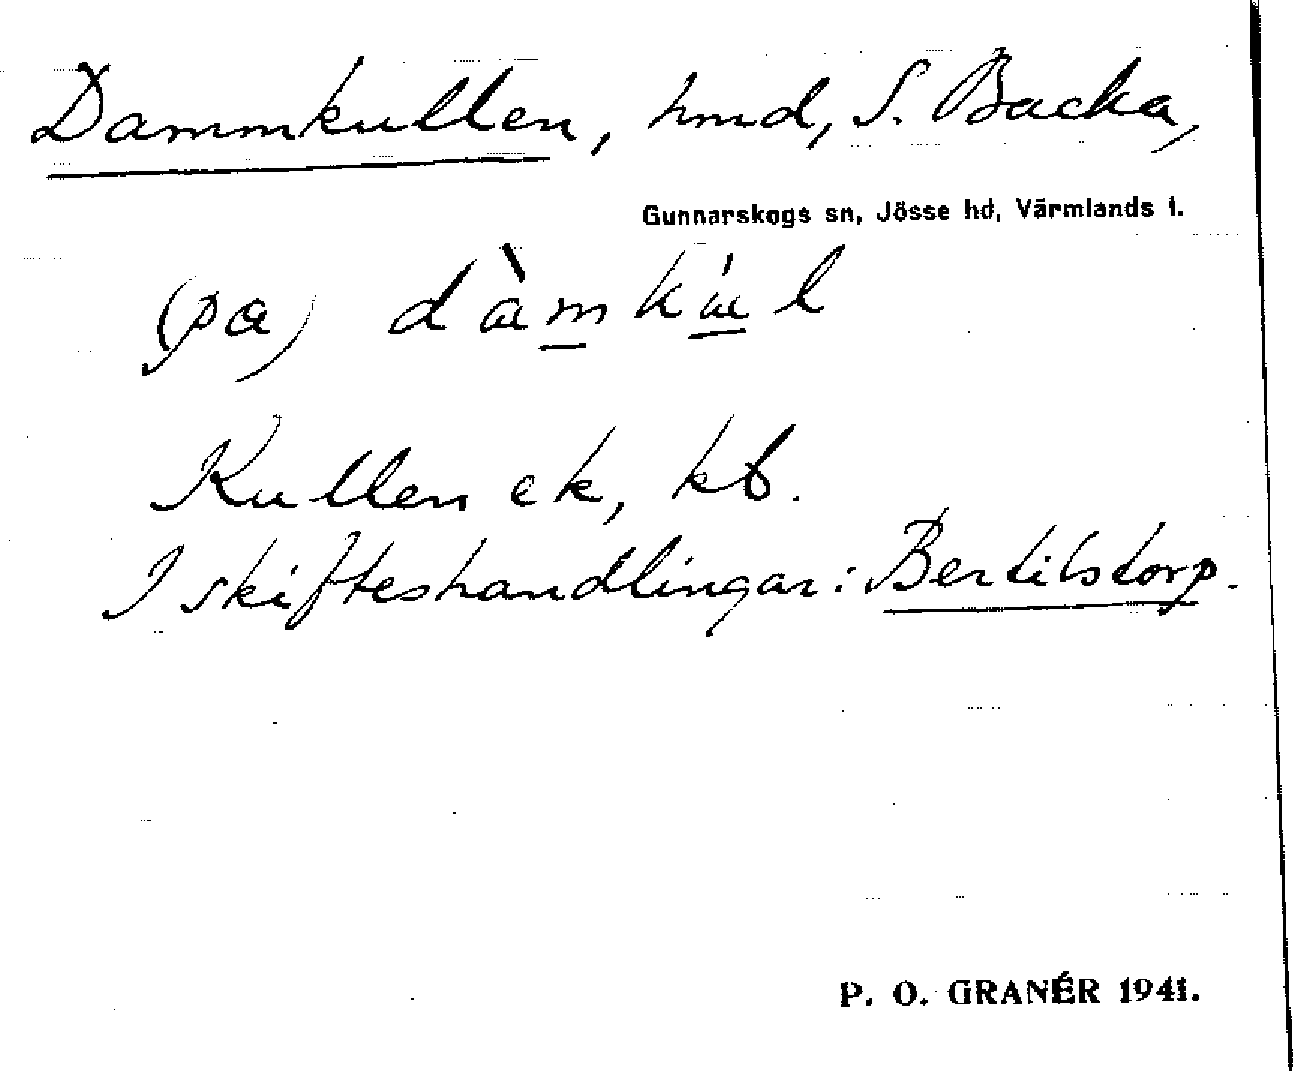 Dammkullen, hmd, S. Backa,
Gunnarskogs sn, Jösse hd, Värmlands l.
(pa) dàmkúl
Kullen ek, kb.
I skifteshandlingar: Bertilstorp.
P. O. GRANÉR 1941.